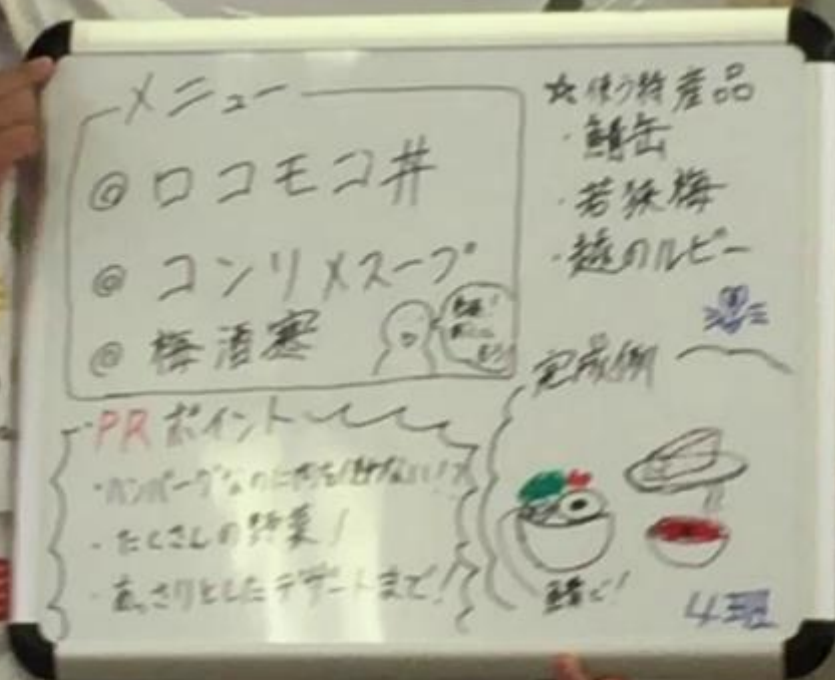 メニュー
◎ロコモコ丼
◎コンソメスープ
◎梅酒寒
PRポイント
・ハンバーグなのに肉を使わない!?
・たくさんの野菜!
・あっさりとしたデザートまで!!
☆使う特産品
・鯖缶
・若狭梅
・越のルビー
完成例
4班